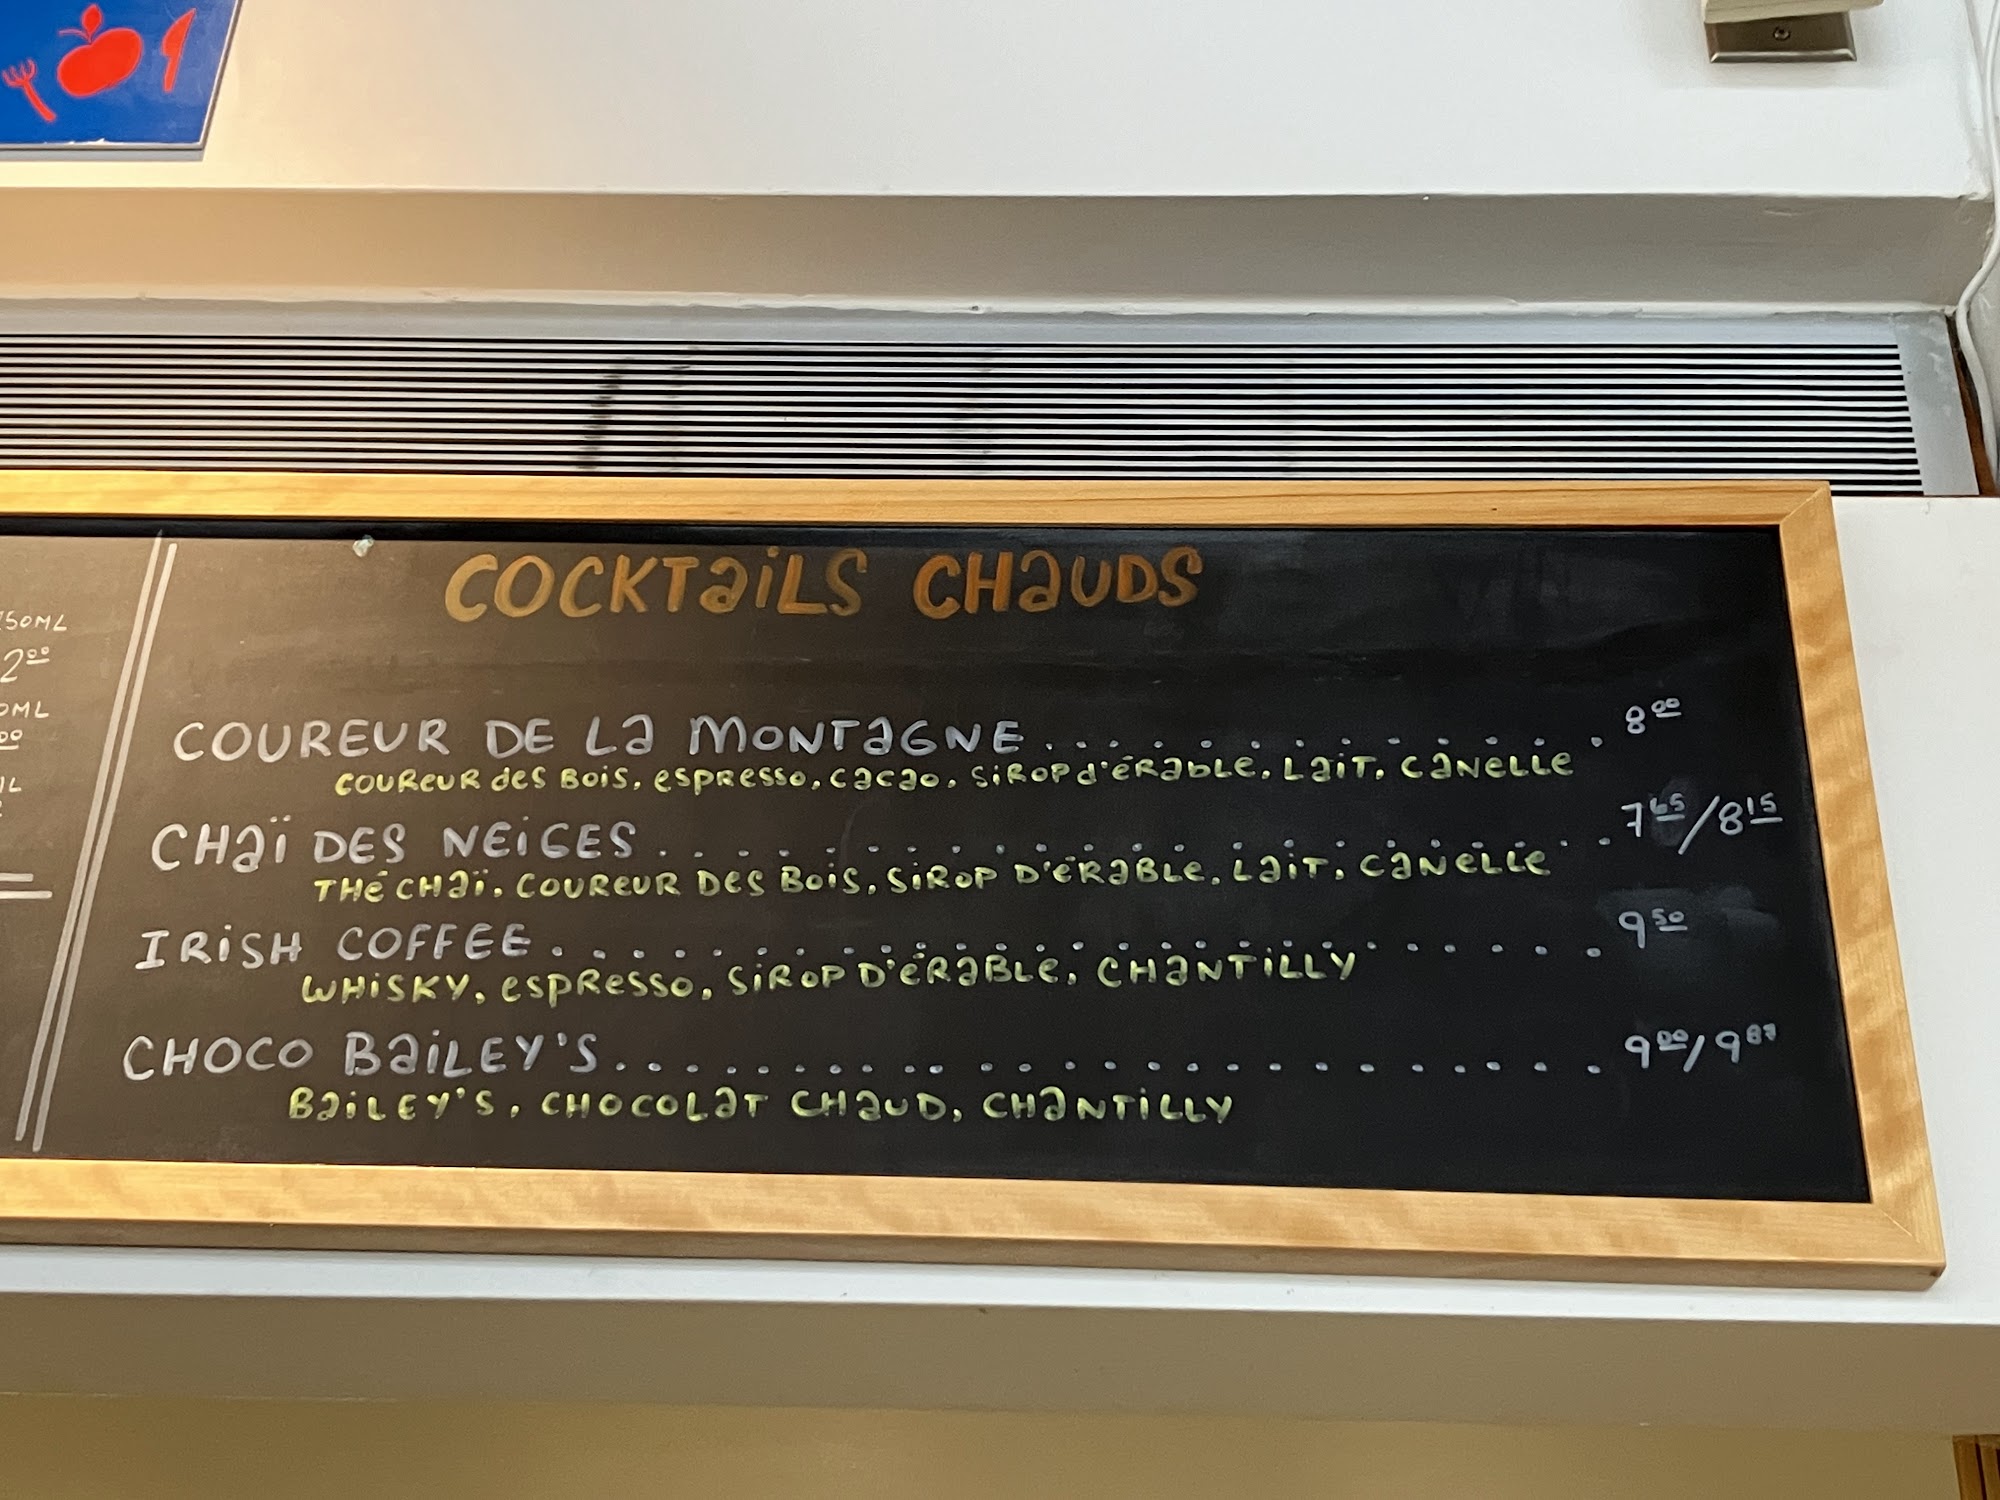 50ML
2 00
0ML
00
COCKTAILS CHAUDS
COUREUR DE LA MONTAGNE............ 8 00
COUREUR DES BOIS, ESPRESSO, CACAO, SIROP D'ÉRABLE, LAIT, CANELLE
CHAÏ DES NEIGES.................... 7 65/8 15
THÉ CHAÏ, COUREUR DES BOIS, SIROP D'ÉRABLE, LAIT, CANELLE
IRISH COFFEE....................... 9 50
WHISKY, ESPRESSO, SIROP D'ÉRABLE, CHANTILLY
CHOCO BAILEY'S..................... 9 00/9 87
BAILEY'S, CHOCOLAT CHAUD, CHANTILLY